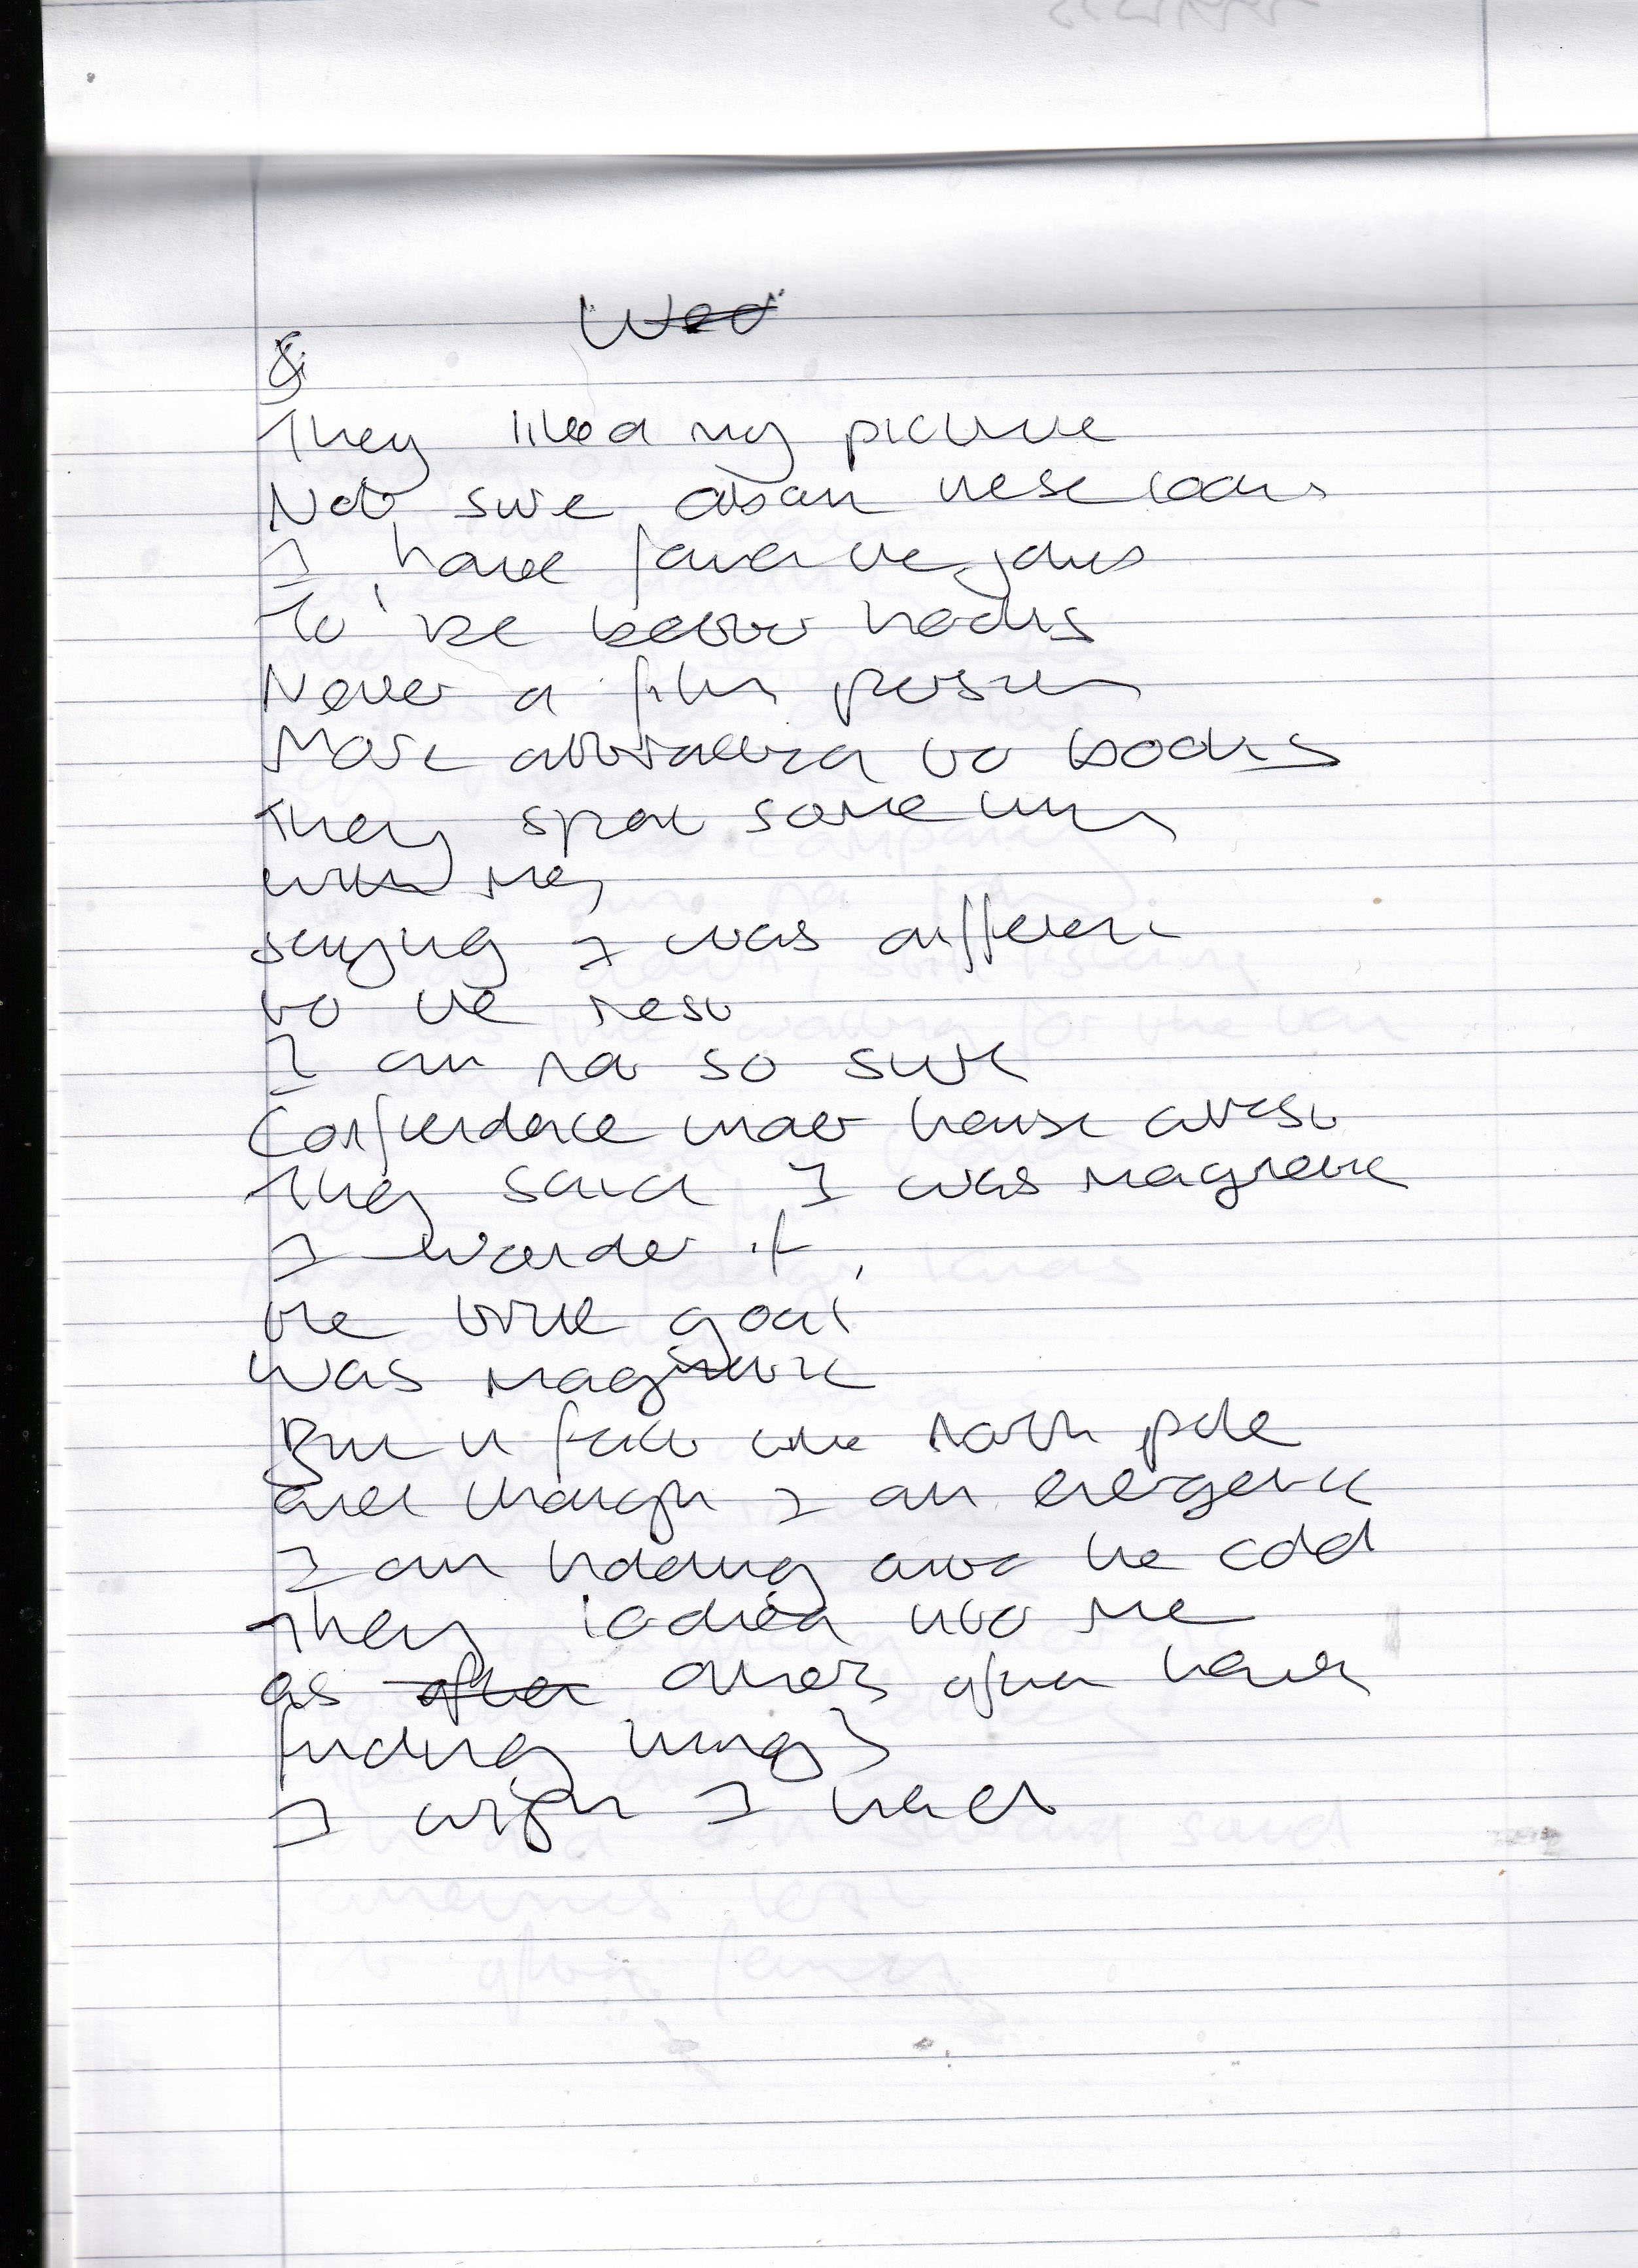 They liked my picture
Not sure about these looks
I have found the jaws
To be better hooks
Never a film person
More attracted to books
They spent some time
with me,
saying I was different
to the rest
I am not so sure
Confidence under house arrest
They said I was magnetic
I wonder if,
the true goal
was magnetic
But it felt like north pole
and though I am energetic
I am hiding and the cold
They looked into me
as others often have
finding things
I wish I had